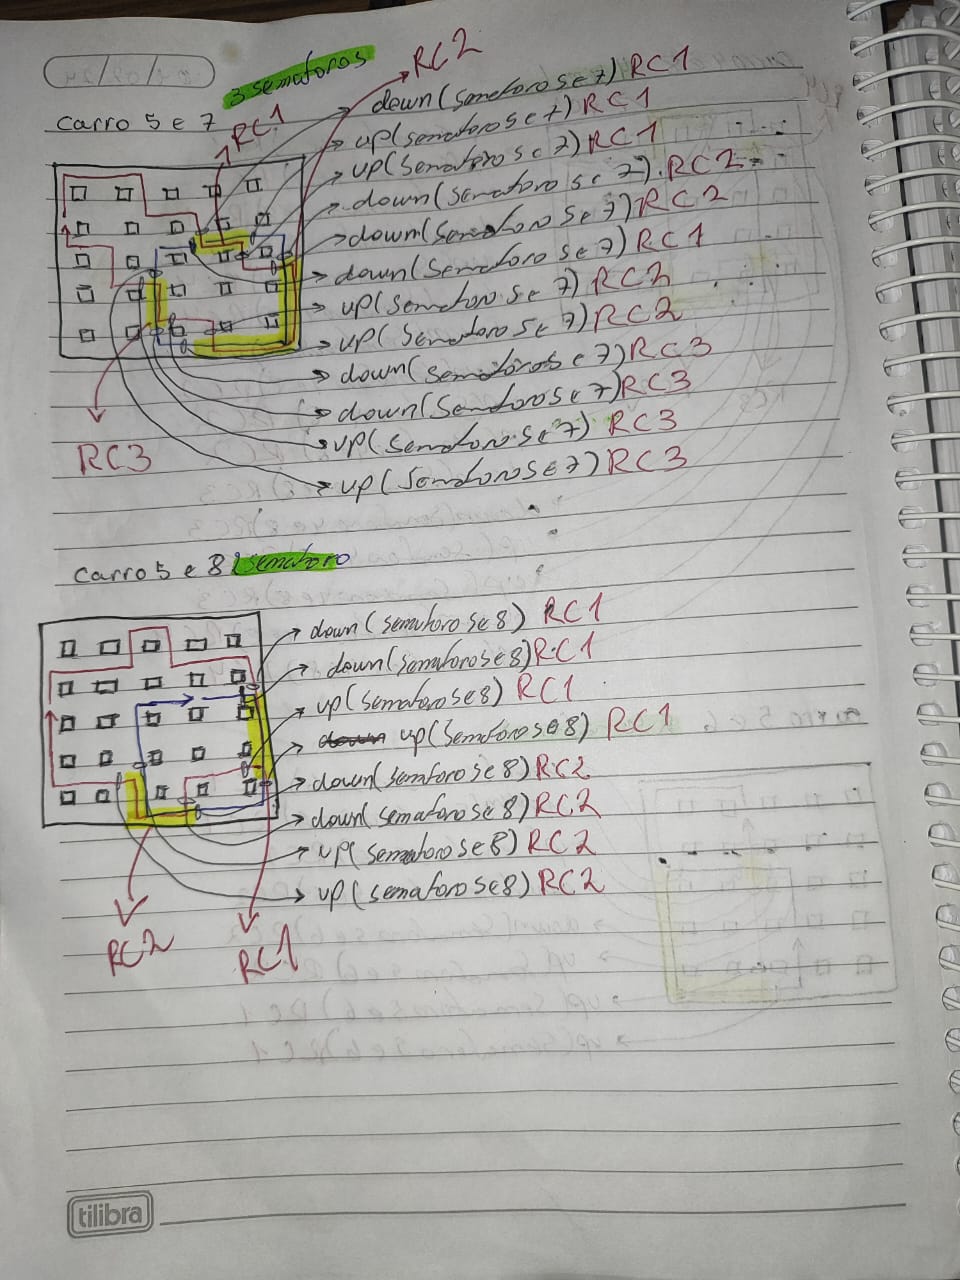 3 semaforos
RC2
carro 5 e 7
RC1
down(semaforo 5 e 7) RC1
up(semaforo 5 e 7) RC1
up(semaforo 5 e 7) RC1
down(semaforo 5 e 7) RC2
down(semaforo 5 e 7) RC2
down(semaforo 5 e 7) RC1
up(semaforo 5 e 7) RC2
up(semaforo 5 e 7) RC2
down(semaforo 5 e 7) RC3
down(semaforo 5 e 7) RC3
up(semaforo 5 e 7) RC3
up(semaforo 5 e 7) RC3
RC3
carro 5 e 8 2 semaforo
down(semaforo 5 e 8) RC1
down(semaforo 5 e 8) RC1
up(semaforo 5 e 8) RC1
down up(semaforo 5 e 8) RC1
down(semaforo 5 e 8) RC2
down(semaforo 5 e 8) RC2
up(semaforo 5 e 8) RC2
up(semaforo 5 e 8) RC2
RC2
RC1
tilibra